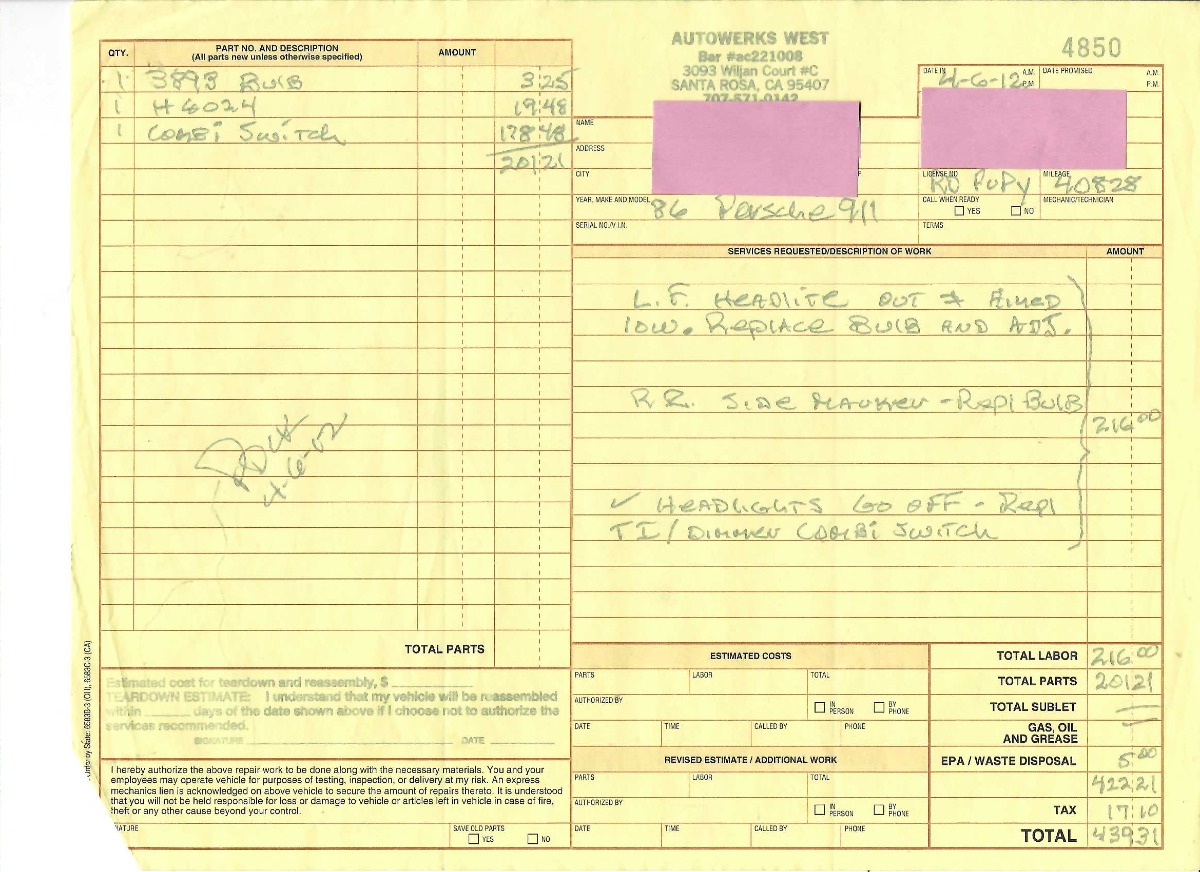 AUTOWERKS WEST
Bar #ac221008
3093 Wiljan Court #C
SANTA ROSA, CA 95407
707-571-0142
4850
QTY. PART NO. AND DESCRIPTION AMOUNT
(All parts new unless otherwise specified)
1 3893 BULB 3 25
1 H6024 19 48
1 COMBI SWITCH 178 48
201 21
DATE IN 4-6-12 A.M. P.M. DATE PROMISED A.M. P.M.
NAME
ADDRESS
CITY
LICENSE NO. MILEAGE 40828
YEAR, MAKE AND MODEL 86 Porsche 911
CALL WHEN READY YES NO MECHANIC/TECHNICIAN
SERIAL NO./V.I.N. TERMS
SERVICES REQUESTED/DESCRIPTION OF WORK AMOUNT
L.F. HEADLITE OUT & AIMED
LOW. REPLACE BULB AND ADJ.
R.R. SIDE MARKER - REPL BULB
216 00
✓ HEADLIGHTS GO OFF - REPL
TI/DIMMER COMBI SWITCH
4-6-12
TOTAL PARTS
Estimated cost for teardown and reassembly, $
TEARDOWN ESTIMATE: I understand that my vehicle will be reassembled
within days of the date shown above if I choose not to authorize the
services recommended.
SIGNATURE DATE
I hereby authorize the above repair work to be done along with the necessary materials. You and your
employees may operate vehicle for purposes of testing, inspection, or delivery at my risk. An express
mechanics lien is acknowledged on above vehicle to secure the amount of repairs thereto. It is understood
that you will not be held responsible for loss or damage to vehicle or articles left in vehicle in case of fire,
theft or any other cause beyond your control.
NATURE SAVE OLD PARTS YES NO
ESTIMATED COSTS
PARTS LABOR TOTAL
AUTHORIZED BY IN PERSON BY PHONE
DATE TIME CALLED BY PHONE
REVISED ESTIMATE / ADDITIONAL WORK
PARTS LABOR TOTAL
AUTHORIZED BY IN PERSON BY PHONE
DATE TIME CALLED BY PHONE
TOTAL LABOR 216 00
TOTAL PARTS 201 21
TOTAL SUBLET —
GAS, OIL AND GREASE —
EPA / WASTE DISPOSAL 5 00
422 21
TAX 17 10
TOTAL 439 31